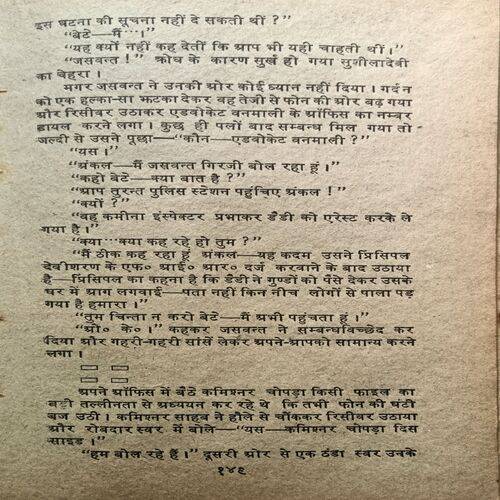 इस घटना की सूचना नहीं दे सकती थीं ?"
"बेटे—मैं···।"
"यह क्यों नहीं कह देतीं कि आप भी यही चाहती थीं।"
"जसवन्त !" क्रोध के कारण सुर्ख हो गया सुशीलादेवी
का चेहरा।
मगर जसवन्त ने उनकी ओर कोई ध्यान नहीं दिया। गर्दन
को एक हल्का-सा झटका देकर वह तेजी से फोन की ओर बढ़ गया
और रिसीवर उठाकर एडवोकेट वनमाली के ऑफिस का नम्बर
डायल करने लगा। कुछ ही पलों बाद सम्बन्ध मिल गया तो
जल्दी से उसने पूछा—"कौन—एडवोकेट वनमाली ?"
"यस।"
"अंकल—मैं जसवन्त गिरजी बोल रहा हूं।"
"कहो बेटे—क्या बात है ?"
"आप तुरन्त पुलिस स्टेशन पहुंचिए अंकल !"
"क्यों ?"
"वह कमीना इंस्पेक्टर प्रभाकर डैडी को एरेस्ट करके ले
गया है।"
"क्या···क्या कह रहे हो तुम ?"
"मैं ठीक कह रहा हूं अंकल—यह कदम उसने प्रिंसिपल
देवीशरण के एफ० आई० आर० दर्ज करवाने के बाद उठाया
है—प्रिंसिपल का कहना है कि डैडी ने गुण्डों को पैसे देकर उसके
घर में आग लगवाई—पता नहीं किन नीच लोगों से पाला पड़
गया है हमारा।"
"तुम चिन्ता न करो बेटे—मैं अभी पहुंचता हूं।"
"ओ० के०।" कहकर जसवन्त ने सम्बन्धविच्छेद कर
दिया और गहरी-गहरी सांसें लेकर अपने-आपको सामान्य करने
लगा।
अपने ऑफिस में बैठे कमिश्नर चोपड़ा किसी फाइल का
बड़ी तल्लीनता से अध्ययन कर रहे थे कि तभी फोन की घंटी
बज उठी। कमिश्नर साहब ने हौले से चौंककर रिसीवर उठाया
और रोबदार स्वर में बोले—"यस—कमिश्नर चोपड़ा दिस
साइड।"
"हम बोल रहे हैं।" दूसरी ओर से एक ठंडा स्वर उनके
१४९